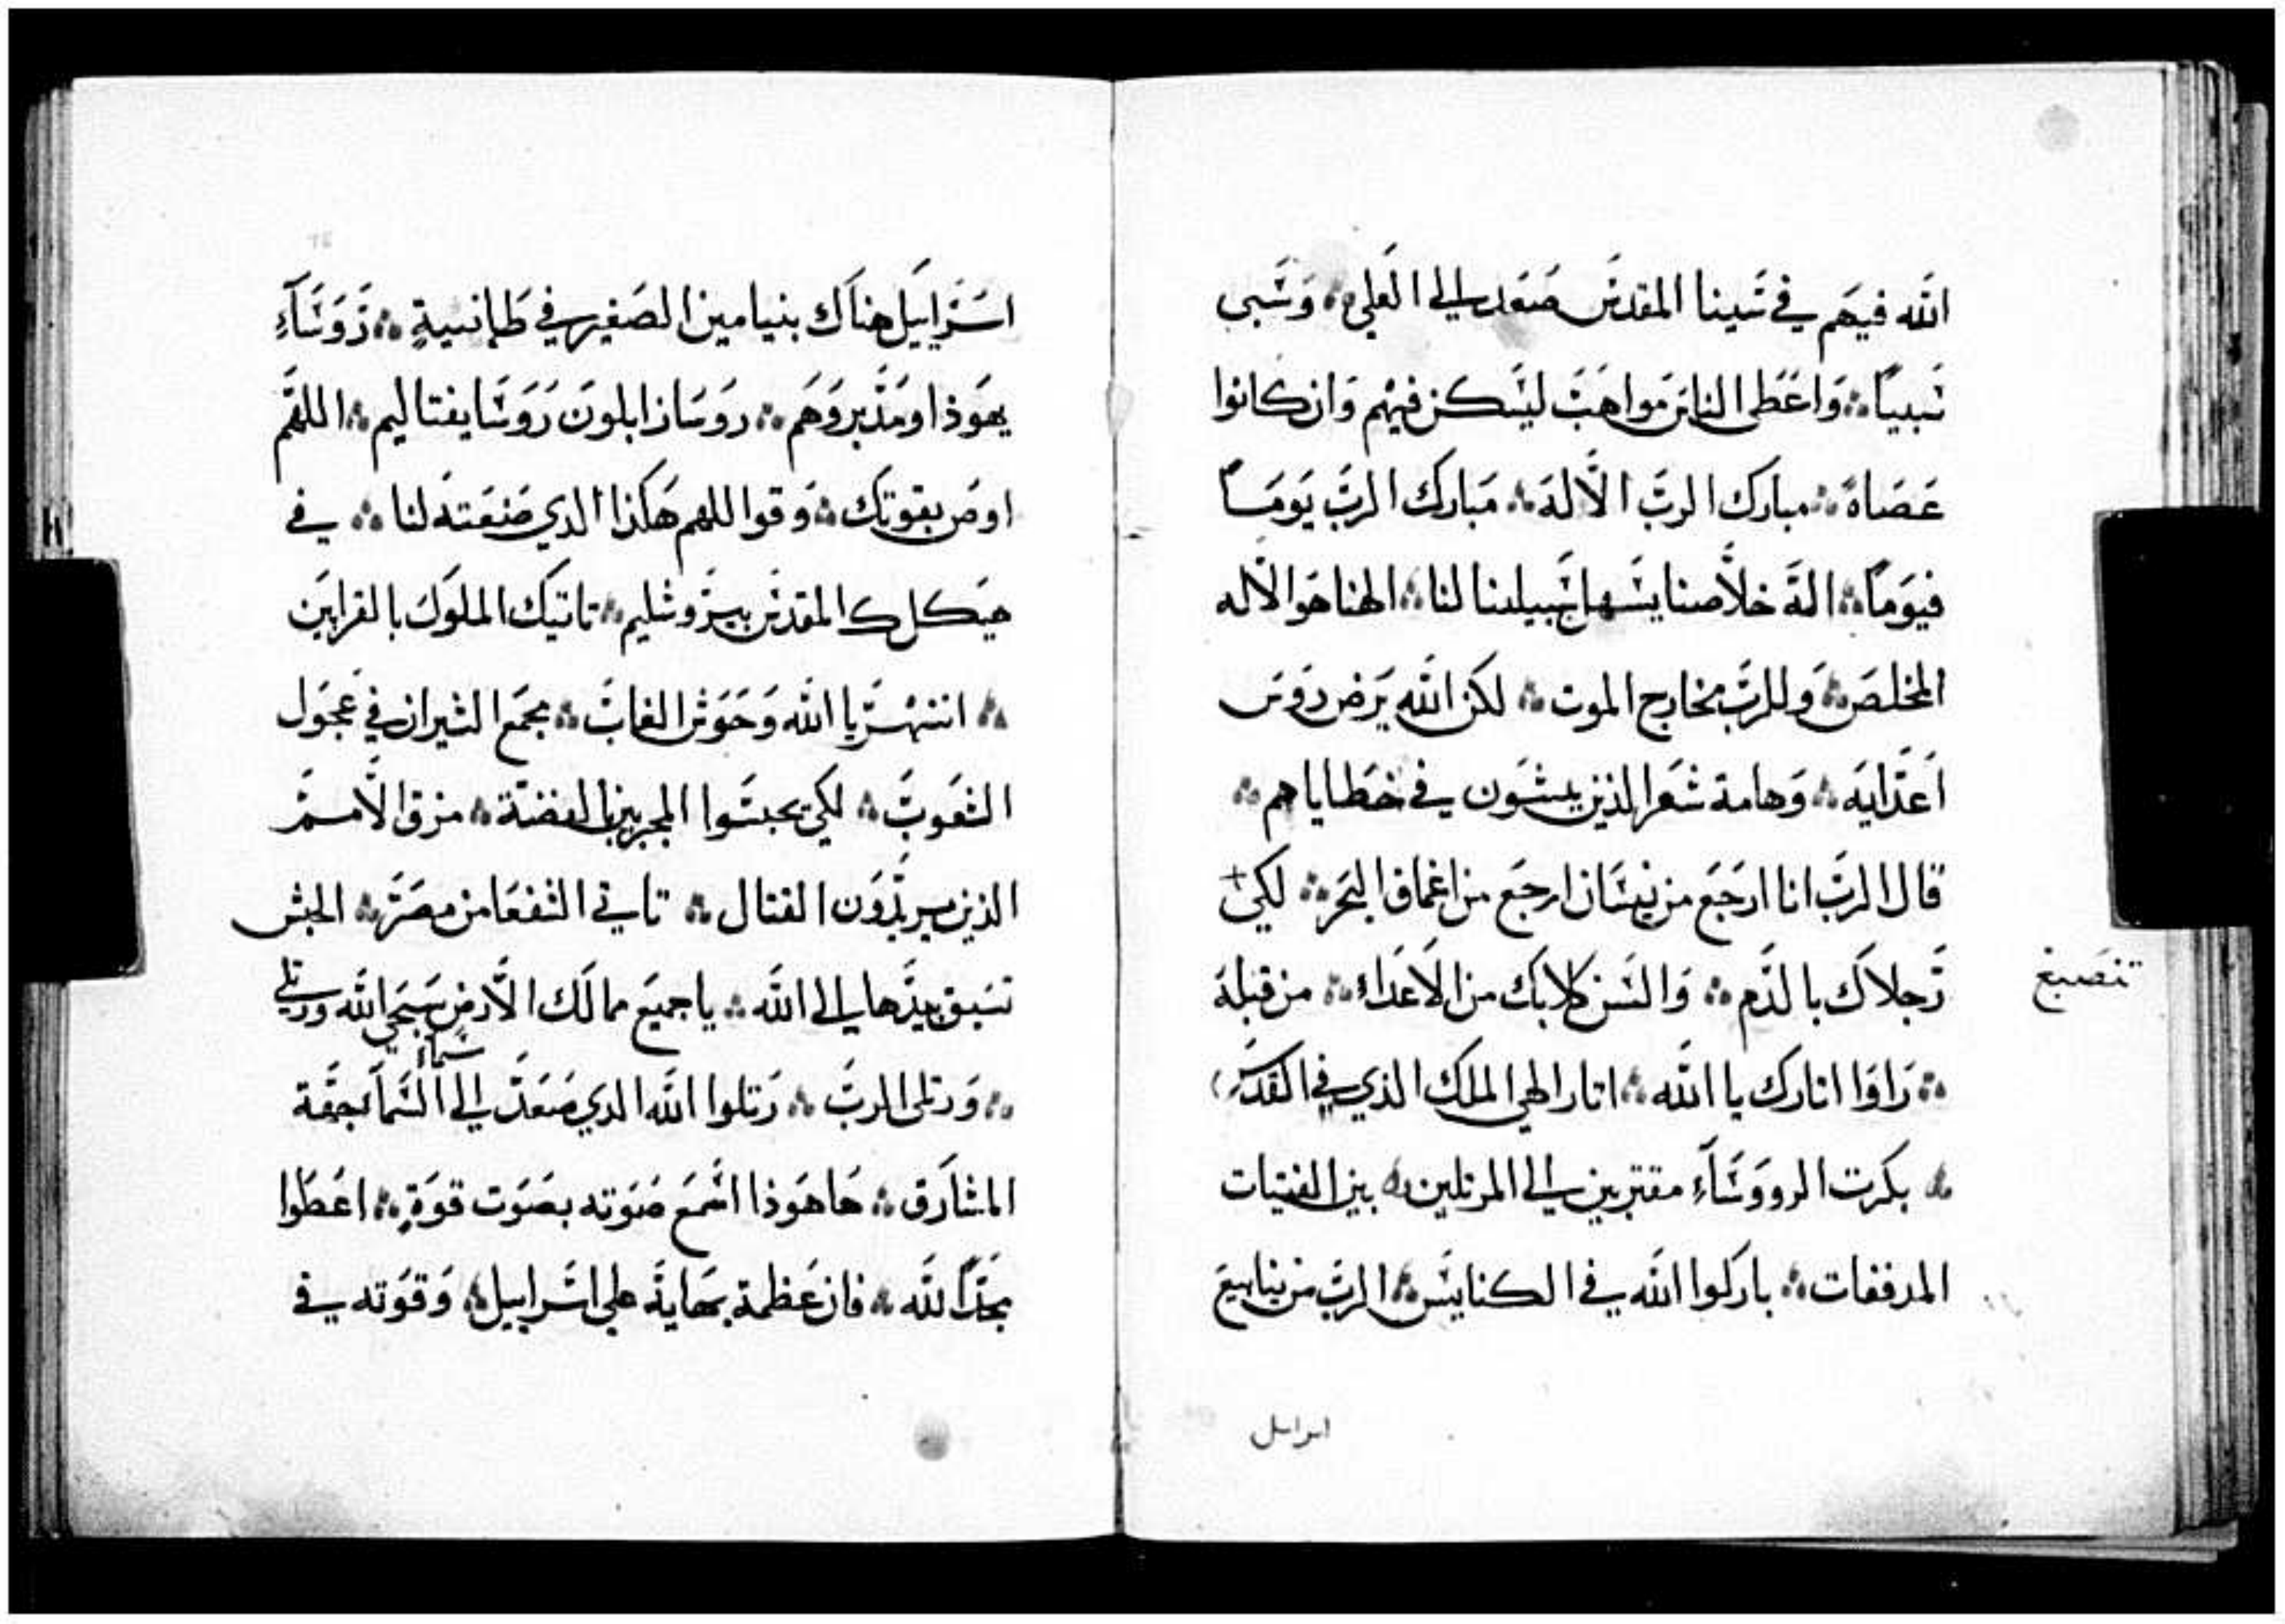 الله فيهم في سينا المقدس صعد الي العلي ∴ وسبى
سبياً ∴ واعطى الناس مواهب ليسكن فيهم وان كانوا
عصاة ∴ مبارك الرب الاله ∴ مبارك الرب يومًا
فيومًا ∴ اله خلاصنا يسهل سبيلنا لنا ∴ الهنا هو الاله
المخلص ∴ وللرب مخارج الموت ∴ لكن الله يرض روس
اعدايه ∴ وهامة شعر الذين يمشون في خطاياهم ∴
قال الرب انا ارجع من نيسان ارجع من اعماق البحر ∴ لكي
تنصبغ
رجلاك بالدم ∴ والسن كلابك من الاعداء ∴ من قبله
∴ راوا اثارك يا الله ∴ اثار الهي الملك الذي في القدس
∴ بكرت الرووساء مقتربين الي المرتلين ∴ بين الفتيات
المدففات ∴ باركوا الله في الكنايس ∴ الرب من ينابيع
اسراىل
اسراييل هناك بنيامين الصغير في طمانسية ∴ روساء
يهوذا ومدبروهم ∴ روسا زابلون روسا يفتاليم ∴ اللهم
اوص بقوتك ∴ وقوا اللهم هكذا الدي صنعته لنا ∴ في
هيكلك المقدس بيروشليم ∴ تاتيك الملوك بالقرابين
∴ انتهر يا الله وحوش الغاب ∴ مجمع الثيران في عجول
الشعوب ∴ لكي يحبسوا المجربين بالفضة ∴ مزق الامم
الذين يريدون القتال ∴ تاتي الشفعا من مصر ∴ الحبش
تسبق بيدها الي الله ∴ يا جميع ممالك الارض سبحي الله ورتلي
∴ ورتلى الرب ∴ رتلوا الله الدي صعد الي السما بجهة
سماء
المشارق ∴ ها هوذا اسمع صوته بصوت قوة ∴ اعطوا
مجدًا لله ∴ فان عظمة بهاية على اسراييل ∴ وقوته في